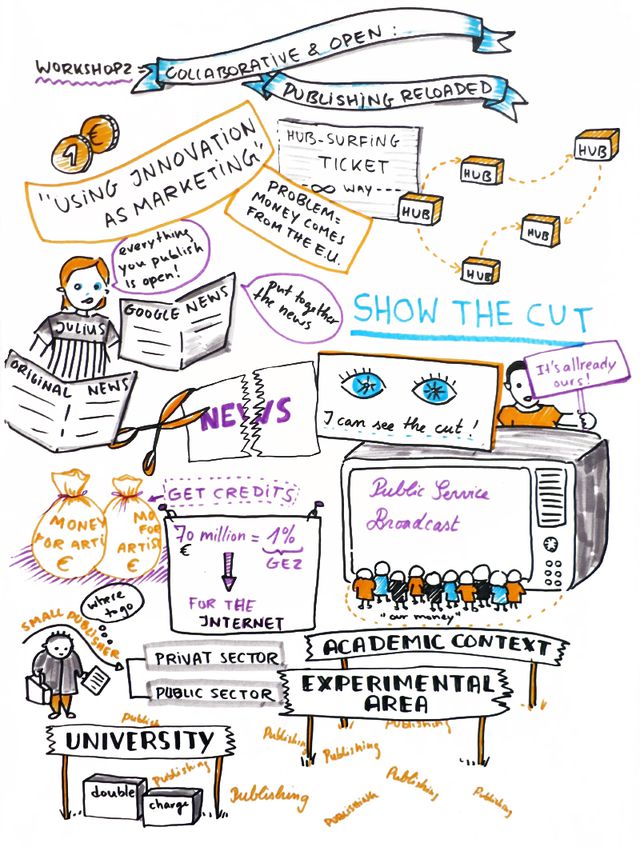 WORKSHOP2 =
COLLABORATIVE & OPEN :
PUBLISHING RELOADED
1
€
"USING INNOVATION
AS MARKETING"
PROBLEM =
MONEY COMES
FROM THE E.U.
HUB-SURFING
TICKET
-∞ WAY---
HUB
HUB
HUB
HUB
HUB
everything
you publish
is open!
JULIUS
GOOGLE NEWS
ORIGINAL NEWS
put together
the news
SHOW THE CUT
NEWS
I can see the cut!
It's allready
ours!
MONEY
FOR ARTI
€
MO
FOR
ARTIS
€
GET CREDITS
70 million = 1%
€
GEZ
FOR THE
INTERNET
Public Service
Broadcast
"our money"
SMALL PUBLISHER
where
to go
PRIVAT SECTOR
PUBLIC SECTOR
ACADEMIC CONTEXT
EXPERIMENTAL
AREA
UNIVERSITY
double
charge
Publish
Publishing
Publishing
Publishing
Publishing
Publishing
Publishing
PUBLISHING
Publishing